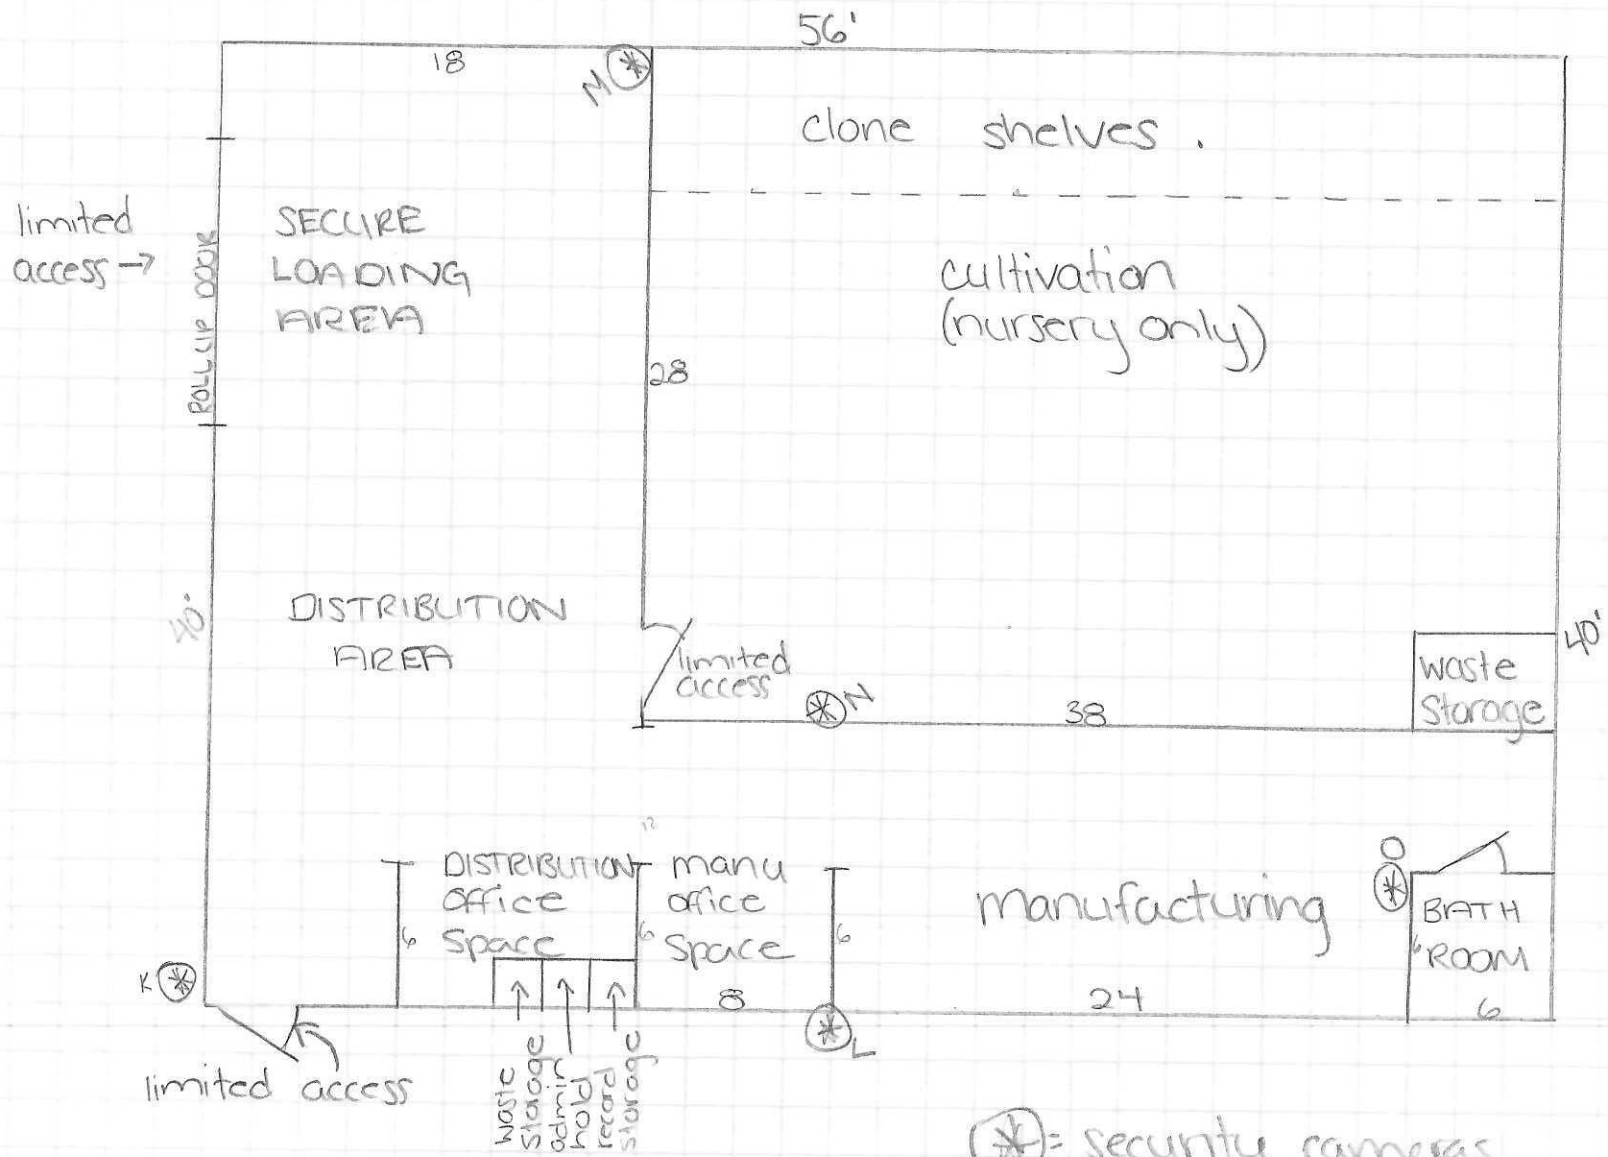 56'
18
M
clone shelves.
limited
access →
ROLLUP DOOR
SECURE
LOADING
AREA
cultivation
(nursery only)
28
40'
DISTRIBUTION
AREA
limited
access
N
38
waste
Storage
40'
12
DISTRIBUTION
office
space
6
manu
office
space
6
8
6
manufacturing
24
O
BATH
ROOM
6
6
K
L
limited access
waste
storage
admin
hold
record
storage
= security cameras